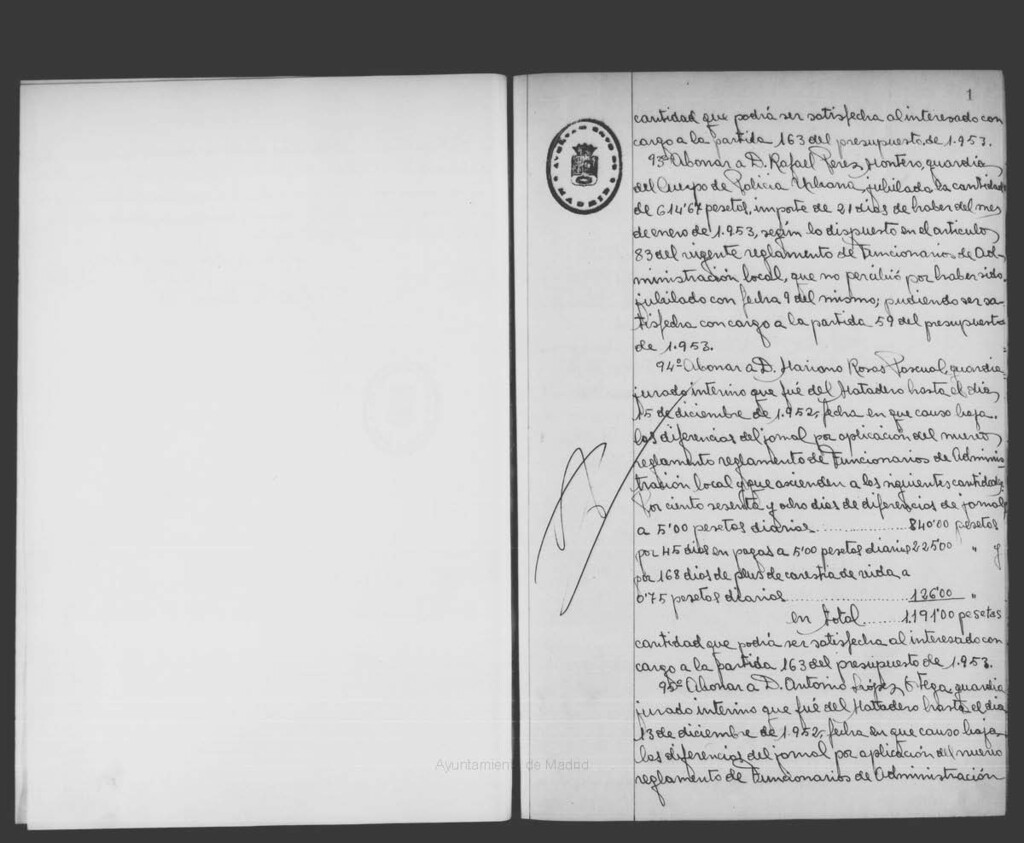 1
AYUNTAMIENTO DE MADRID
cantidad que podrá ser satisfecha al interesado con
cargo a la partida 163 del presupuesto de 1.953.
93º Abonar a D. Rafael Perez Montero, guardia
del Cuerpo de Policia Urbana, jubilado la cantidad
de 614'67 pesetas, importe de 21 dias de haber del mes
de enero de 1.953, según lo dispuesto en el articulo
83 del vigente reglamento de Funcionarios de Ad-
ministración local, que no percibió por haber sido
jubilado con fecha 9 del mismo; pudiendo ser sa-
tisfecha con cargo a la partida 59 del presupuesto
de 1.953.
94º Abonar a D. Mariano Rosas Pascual, guardia
jurado interino que fué del Matadero hasta el dia
15 de diciembre de 1.952, fecha en que causo baja.
las diferencias del jornal por aplicación del nuevo
reglamento reglamento de Funcionarios de Adminis-
tración local y que ascienden a las siguientes cantidades
Por ciento sesenta y ocho dias de diferencias de jornal
a 5'00 pesetas diarias ............... 840'00 pesetas
por 45 dias en pagas a 5'00 pesetas diarias 225'00 " y
por 168 dias de plus de carestia de vida a
0'75 pesetas diarias ............... 126'00 "
en total ........ 1.191'00 pesetas
cantidad que podrá ser satisfecha al interesado con
cargo a la partida 163 del presupuesto de 1.953.
95º Abonar a D. Antonio López Ortega, guardia
jurado interino que fué del Matadero hasta el dia
13 de diciembre de 1.952, fecha en que causo baja
las diferencias del jornal por aplicación del nuevo
reglamento de Funcionarios de Administración
Ayuntamiento de Madrid